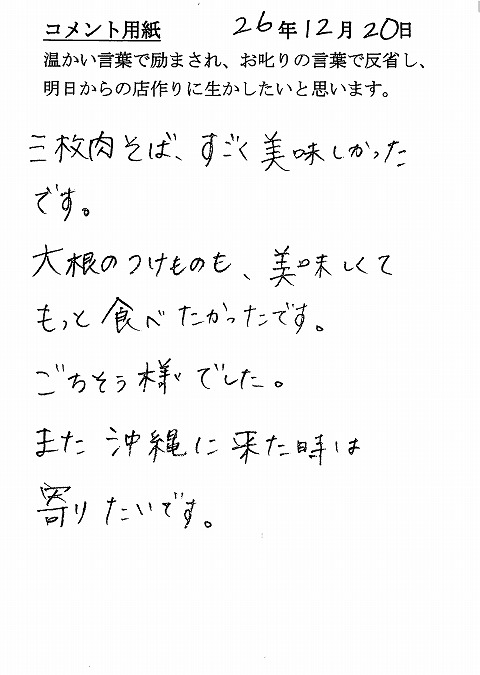 コメント用紙 26年12月20日
温かい言葉で励まされ、お叱りの言葉で反省し、
明日からの店作りに生かしたいと思います。
三枚肉そば、すごく美味しかった
です。
大根のつけものも、美味しくて
もっと食べたかったです。
ごちそう様でした。
また沖縄に来た時は
寄りたいです。